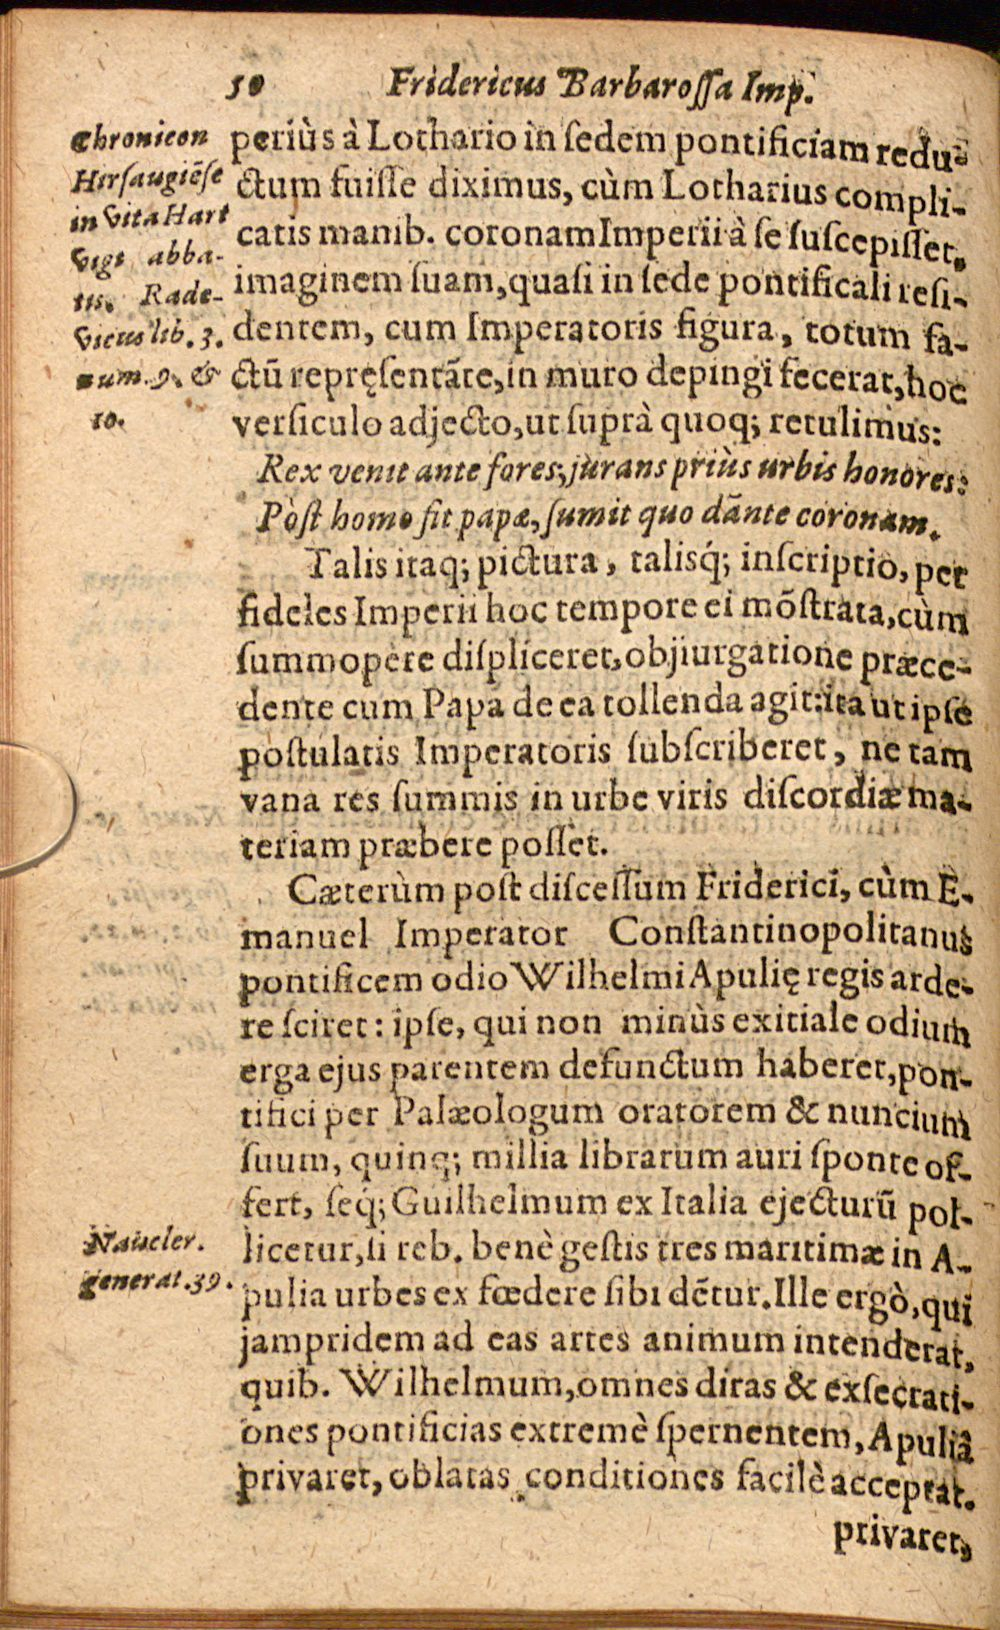 50 Fridericus Barbarossa Imp.
Chronicon
Hirſaugiẽſe
in Vita Hart
Vigi abba-
tis. Rade-
Vicus lib. 3.
num. 9. &
10.
periùs à Lothario in ſedem pontificiam redu-
ctum fuiſſe diximus, cùm Lotharius compli-
catis manib. coronam Imperii à ſe ſuſcepiſſet,
imaginem ſuam, quaſi in ſede pontificali reſi-
dentem, cum Imperatoris figura, totum fa-
ctũ repręſentãte, in muro depingi fecerat, hoc
verſiculo adjecto, ut ſuprà quoq; retulimus:
Rex venit ante fores, jurans priùs urbis honores:
Pòſt homo fit papæ, ſumit quo dãnte coronam.
Talis itaq; pictura, talisq́; inſcriptio, per
fideles Imperii hoc tempore ei mõſtrata, cùm
ſummopere diſpliceret, objiurgatione præce-
dente cum Papa de ea tollenda agit: ita ut ipſe
poſtulatis Imperatoris ſubſcriberet, ne tam
vana res ſummis in urbe viris diſcordiæ ma-
teriam præbere poſſet.
Cæterùm poſt diſceſſum Friderici, cùm E-
manuel Imperator Conſtantinopolitanus
pontificem odio Wilhelmi Apulię regis arde-
re ſciret: ipſe, qui non minùs exitiale odium
erga ejus parentem defunctum haberet, pon-
tifici per Palæologum oratorem & nuncium
ſuum, quinq; millia librarum auri ſponte of-
fert, ſeq́; Guilhelmum ex Italia ejecturũ pol-
licetur, ſi reb. benè geſtis tres maritimæ in A-
pulia urbes ex fœdere ſibi dẽtur. Ille ergò, qui
jampridem ad eas artes animum intenderat,
quib. Wilhelmum, omnes diras & exſecrati-
ones pontificias extremè ſpernentem, Apuliâ
privaret, oblatas conditiones facilè acceptat.
Naucler.
generat. 39.
privaret,